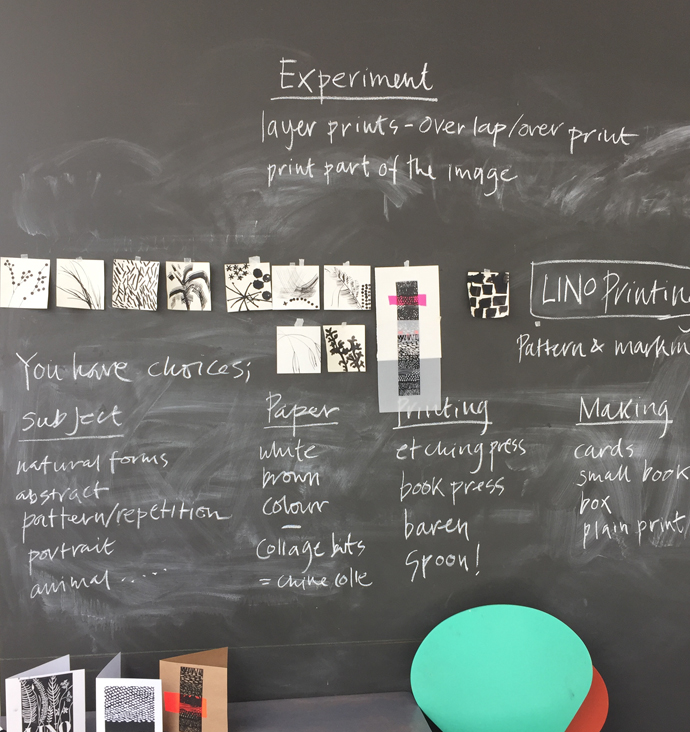 Experiment
layer prints - overlap/over print
print part of the image
LINO Printin
Pattern & markin
You have choices;
subject
natural forms
abstract
pattern/repetition
portrait
animal.....
Paper
white
brown
colour
collage bits
= chine colle
Printing
etching press
book press
baren
spoon!
Making
cards
small book
box
plain print/
LINO